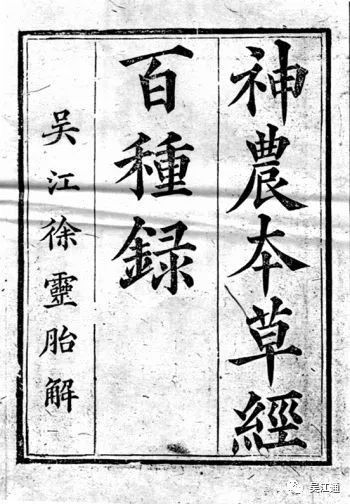 神農本草經
百種録
吴江徐靈胎解
吴江通